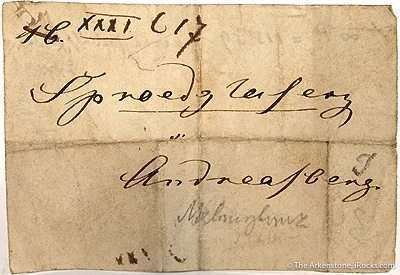 XXXI C 17
Sproedglaserz
Andreasberg.
Melanglanz
The Arkenstone, iRocks.com